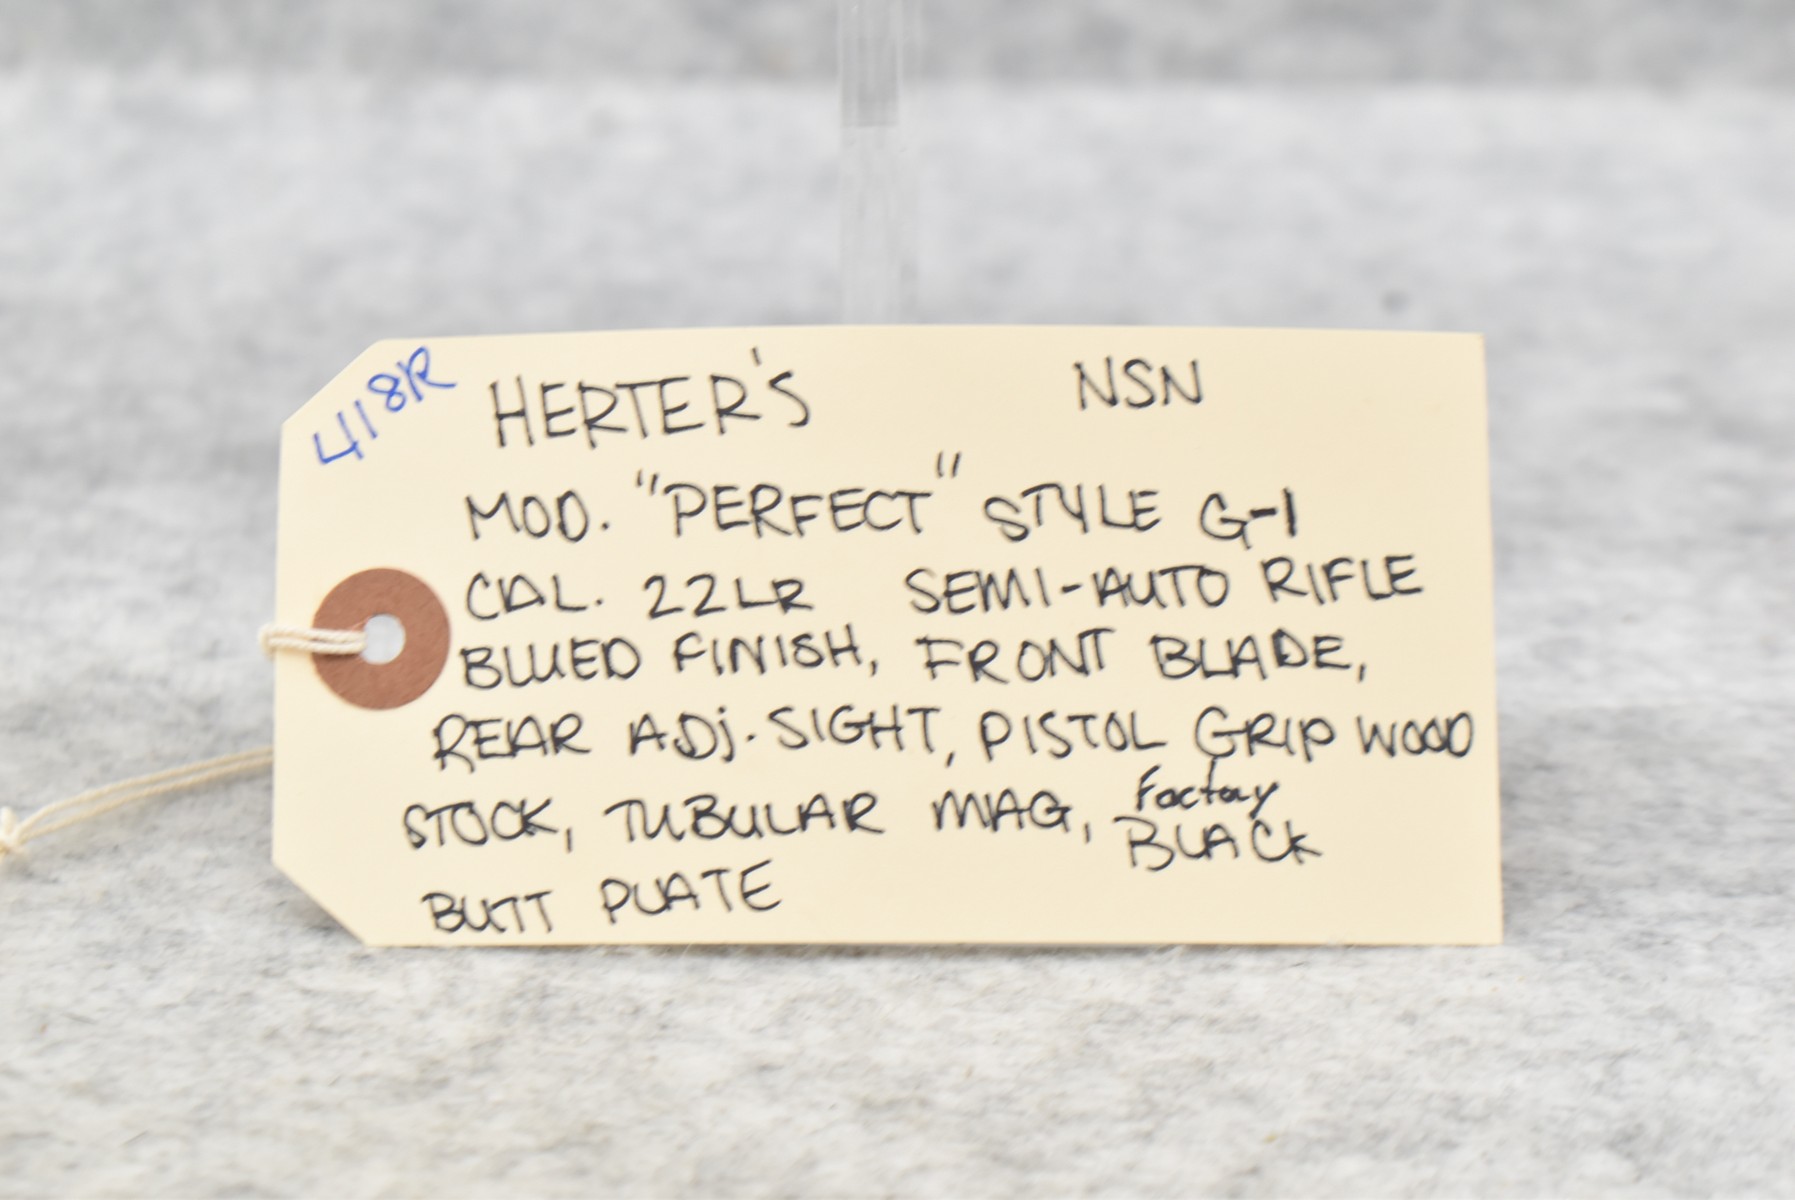 418R
HERTER'S NSN
MOD. "PERFECT" STYLE G-1
CAL. 22LR SEMI-AUTO RIFLE
BLUED FINISH, FRONT BLADE,
REAR ADj. SIGHT, PISTOL GRIP WOOD
STOCK, TUBULAR MAG, Factory
BLACK
BUTT PLATE